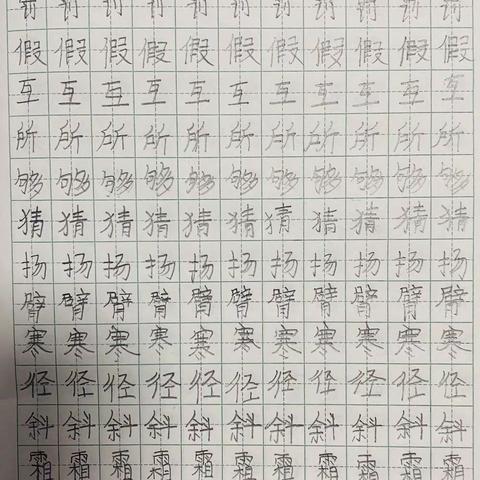 假假假假假假假假假假假
互互互互互互互互互互互
所所所所所所所所所所所
够够够够够够够够够够够
猜猜猜猜猜猜猜猜猜猜猜
扬扬扬扬扬扬扬扬扬扬扬
臂臂臂臂臂臂臂臂臂臂臂
寒寒寒寒寒寒寒寒寒寒寒
径径径径径径径径径径径
斜斜斜斜斜斜斜斜斜斜斜
霜霜霜霜霜霜霜霜霜霜霜